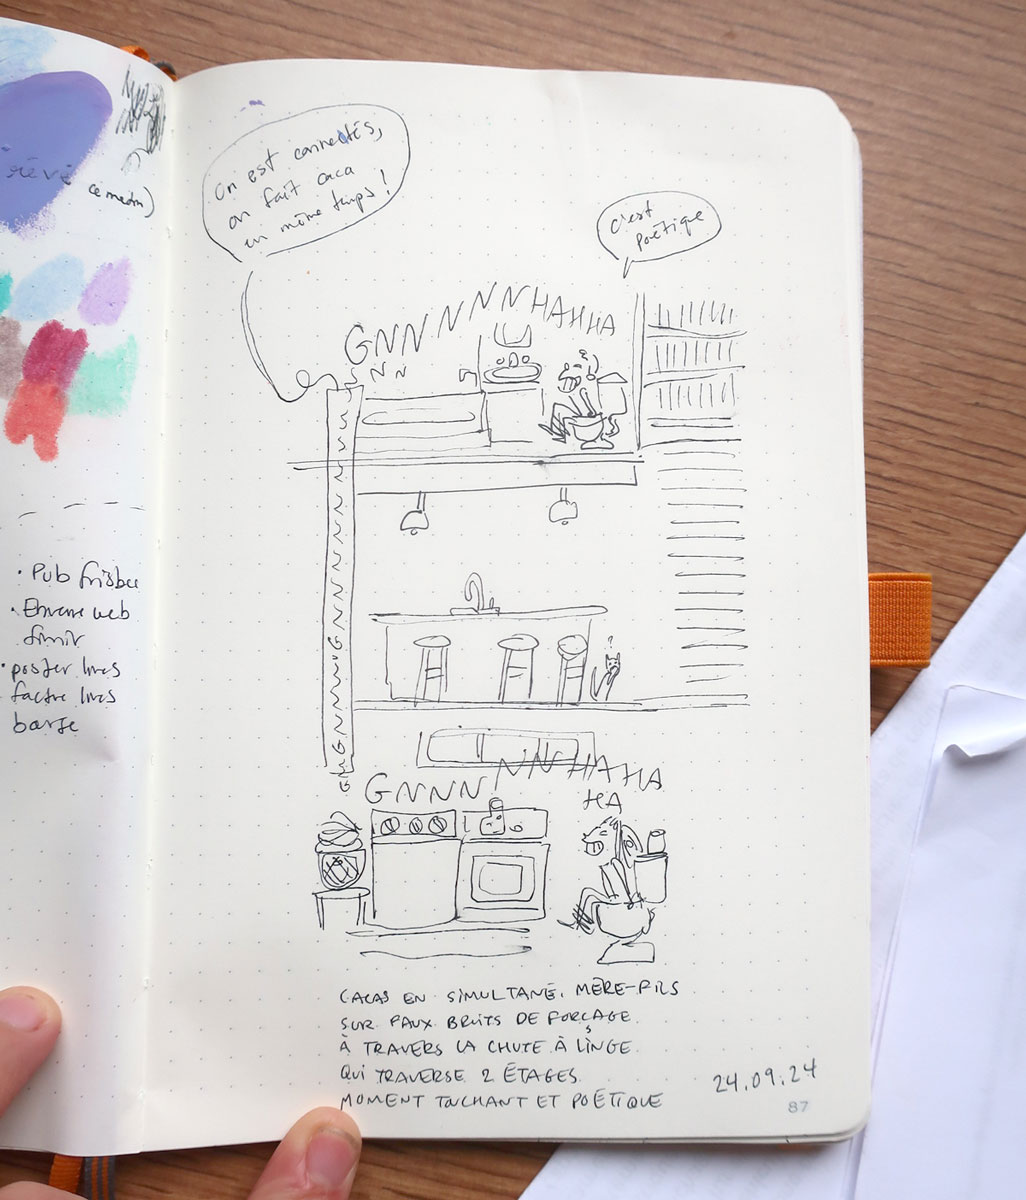 rêvé
• Pub frisbee
web
finir
• poster lives
factre lives
barge
On est connectés,
on fait caca
en même temps !
c'est
poétique
GNNNNNNHAHHA
NN
GNNNNNNHAHA
HA
CACAS EN SIMULTANÉ, MÈRE-FILS
SUR FAUX BRUITS DE FORÇAGE
À TRAVERS LA CHUTE À LINGE
QUI TRAVERSE 2 ÉTAGES.
MOMENT TOUCHANT ET POÉTIQUE
24.09.24
87